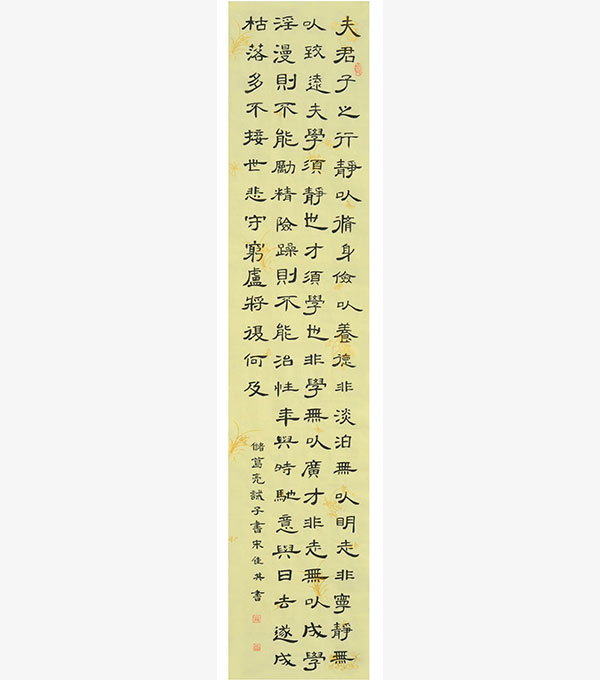 夫君子之行靜以脩身儉以養德非淡泊無以明志非寧靜無
以致遠夫學須靜也才須學也非學無以廣才非志無以成學
淫漫則不能勵精險躁則不能治性年與時馳意與日去遂成
枯落多不接世悲守窮盧將復何及
諸葛亮誡子書宋佳其書